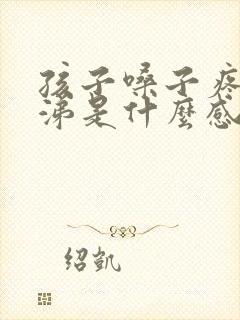 孩子嗓子疼
涕是什麼感
绍凯